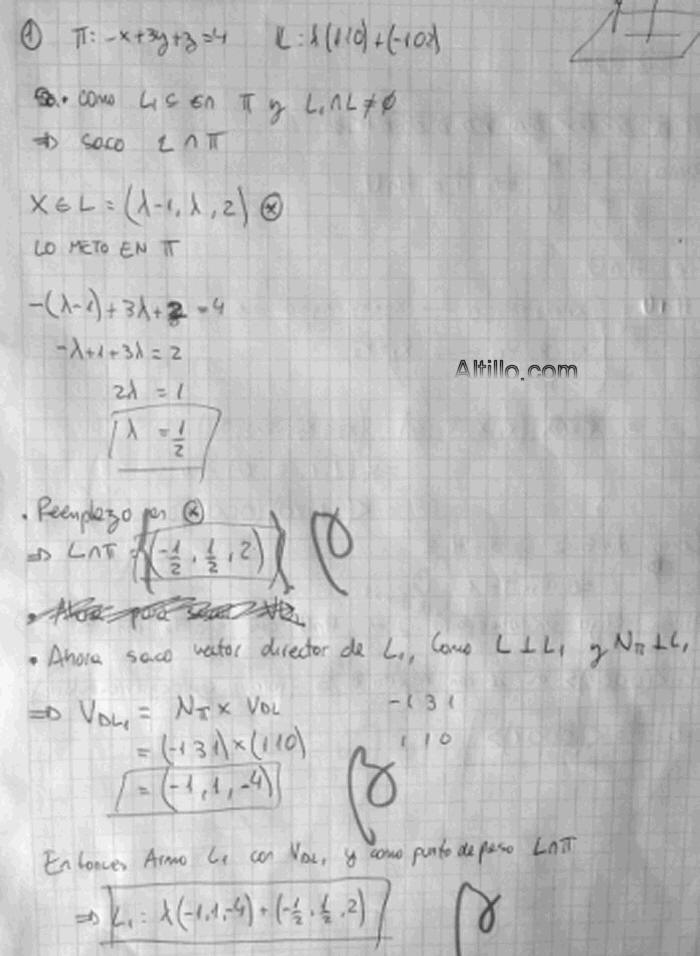 ① π: -x+3y+z=4 L: λ(110)+(-102)
• COMO L₁ ⊆ EN π y L₁∩L≠∅
⇒ SACO L∩π
X∈L = (λ-1, λ, 2) ⊛
LO METO EN π
-(λ-1)+3λ+2=4
-λ+1+3λ=2
2λ = 1
λ = 1/2
• Reemplazo en ⊛
⇒ L∩π = (-1/2, 1/2, 2)
• Ahora para sacar
• Ahora saco vector director de L₁, Como L⊥L₁ y Nπ⊥L₁
⇒ VDL₁ = Nπ x VDL -1 3 1
= (-131)x(110) 1 1 0
= (-1,1,-4)
Entonces Armo L₁ con VDL₁ y como punto de paso L∩π
⇒ L₁: λ(-1,1,-4)+(-1/2, 1/2, 2)
Altillo.com